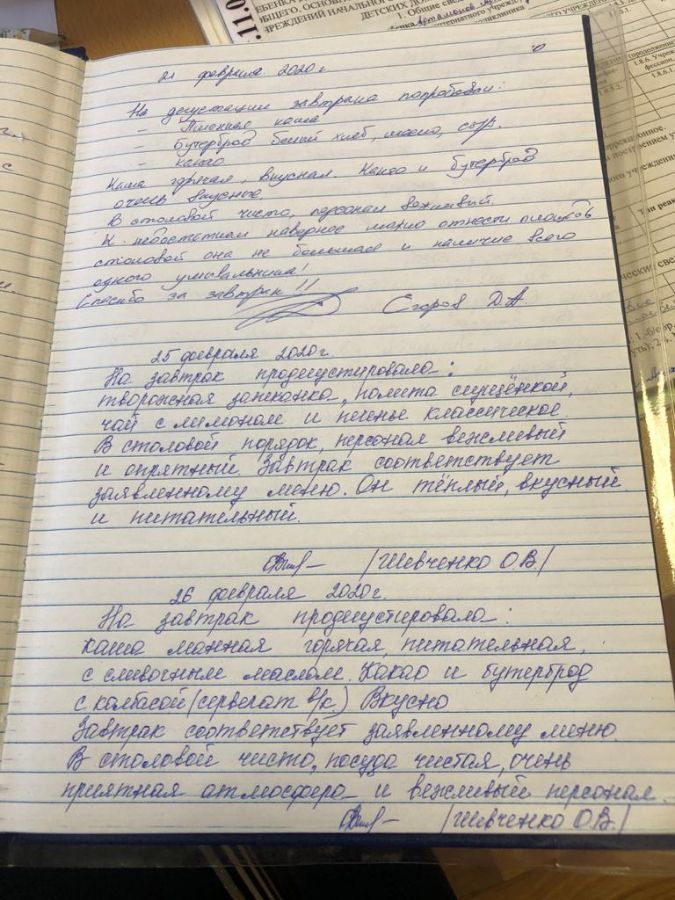 21 февраля 2020г
На дегустации завтрака попробовали:
- Пшенная каша
- бутерброд белый хлеб, масло, сыр.
- какао
Каша горячая, вкусная. Какао и бутерброд
очень вкусные.
В столовой чисто, персонал вежливый.
К недостаткам наверное можно отнести площадь
столовой она не большая и наличие всего
одного умывальника!
Спасибо за завтрак!!
Егоров Д.А
25 февраля 2020г
На завтрак продегустировала:
творожная запеканка, полита сгущёнкой,
чай с лимоном и печенье классическое.
В столовой порядок, персонал вежливый
и опрятный. Завтрак соответствует
заявленному меню. Он тёплый, вкусный
и питательный.
/Шевченко О.В/
26 февраля 2020г.
На завтрак продегустировала:
каша манная горячая, питательная,
с сливочным маслом. Какао и бутерброд
с колбасой (сервелат в/к.) Вкусно
Завтрак соответствует заявленному меню.
В столовой чисто, посуда чистая, очень
приятная атмосфера и вежливый персонал.
/Шевченко О.В./